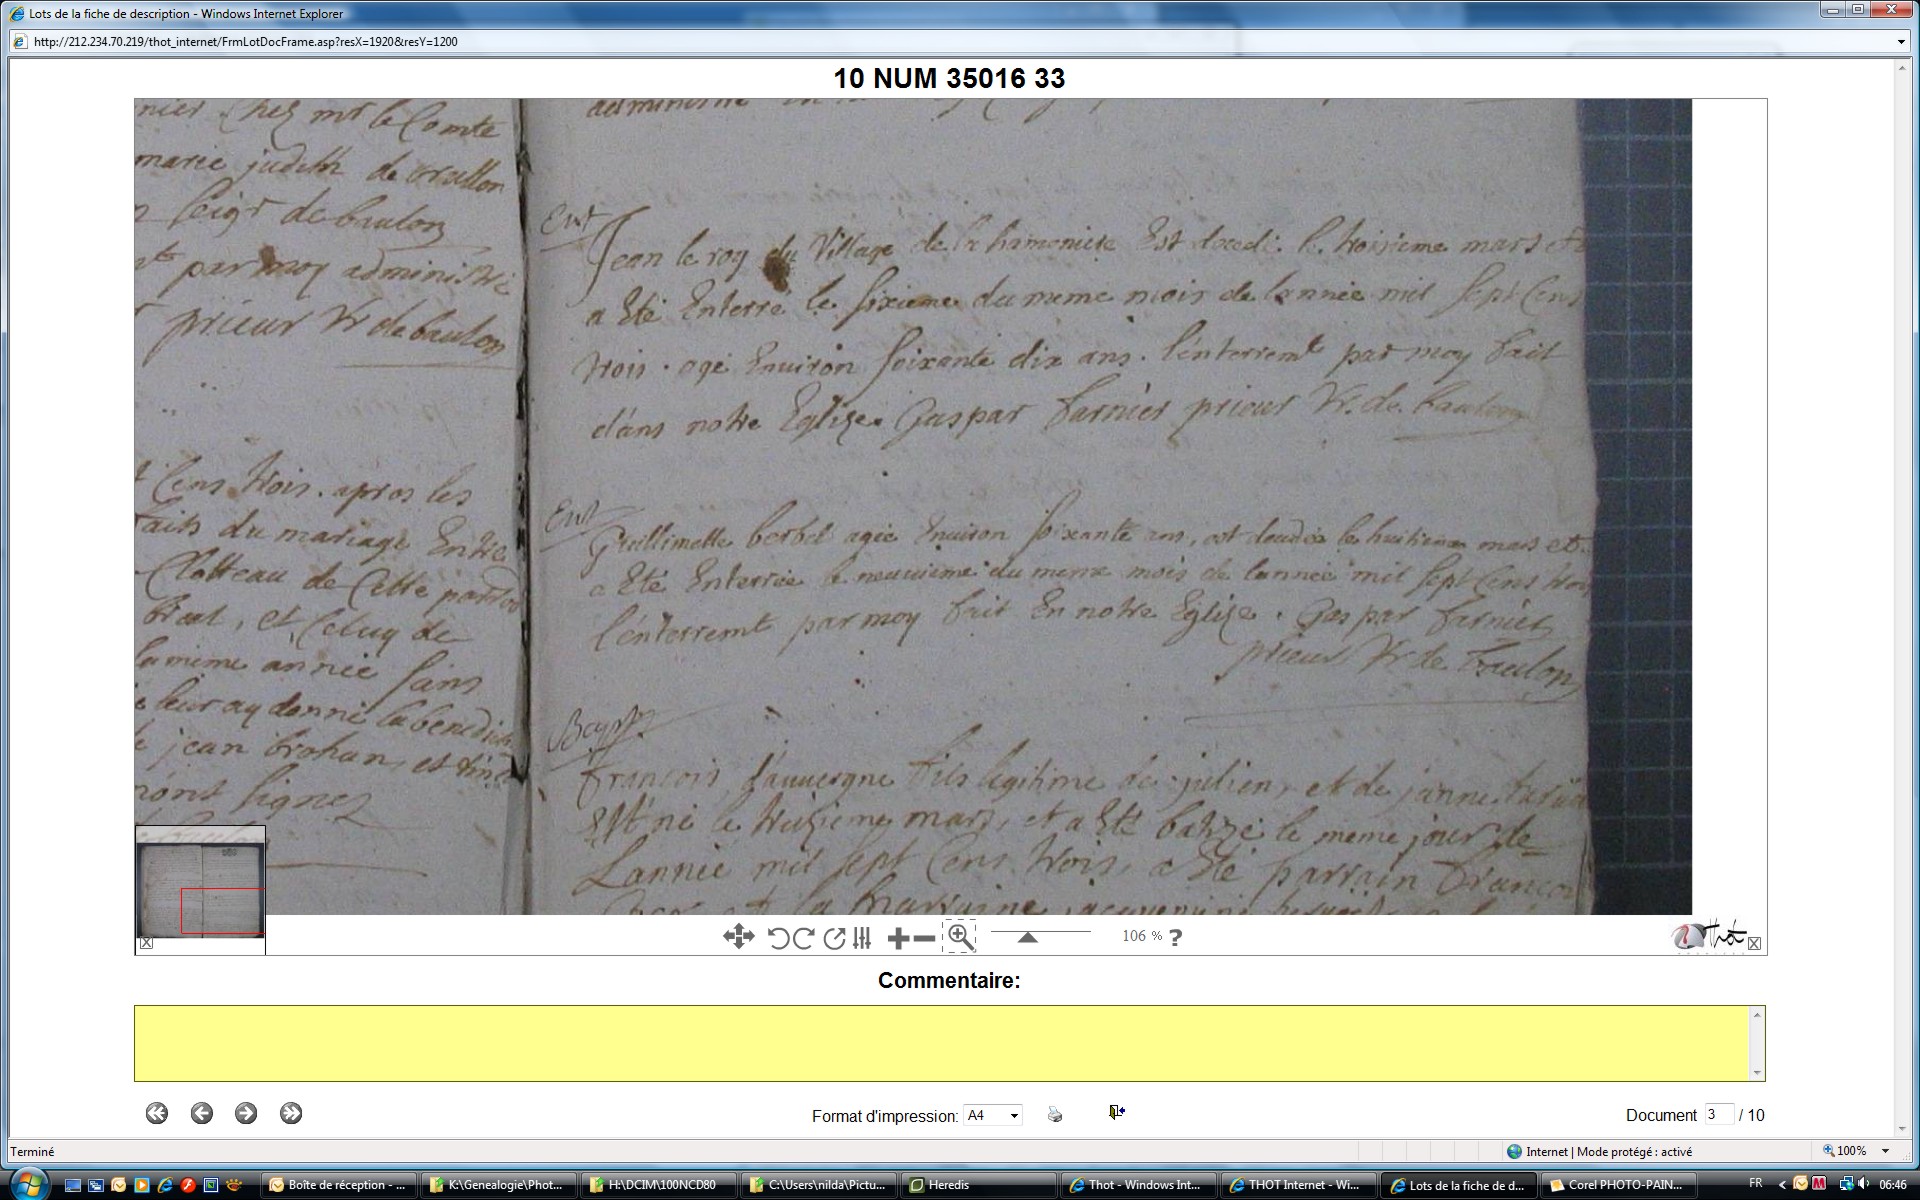 Lots de la fiche de description - Windows Internet Explorer
http://212.234.70.219/thot_internet/FrmLotDocFrame.asp?resX=1920&resY=1200
10 NUM 35016 33
nier chez mr le Comte
marie judith de
seigr de baulon
par moy administré
prieur Vr de baulon
Cens trois. apres les
faits du mariage Entre
de Cette
et Celuy de
la meme année sans
leur ay donné la benedict
jean brohan, et
signer
Ent
Jean le roy du Village de la hamoniere Est decedé le troisieme mars et
a Eté Enterré le sixieme du meme mois de lannée mil sept Cens
trois. agé Environ soixante dix ans. l'enterremt par moy fait
dans notre Eglize. Gaspar farnier prieur Vr. de. baulon
Ent
Guillimette berbel agée Environ soixante ans, est decedée le huitieme mars et
a Eté Enterrée le neuvieme du meme mois de lannée mil sept Cens trois
l'enterremt par moy fait En notre Eglize. Gaspar farnier
prieur Vr de baulon
Bapt
francois d'auvergne fils legitime de julien, et de janne
Est né le treizieme mars, et a Eté batizé le meme jour de
Lannée mil sept Cens trois, a Eté parrain francois
la Marraine
106 % ?
Thot
Commentaire:
Format d'impression: A4
Document 3 / 10
Terminé
Internet | Mode protégé : activé
100%
Boîte de réception - ...
K:\Genealogie\Phot...
H:\DCIM\100NCD80
C:\Users\nilda\Pictu...
Heredis
Thot - Windows Int...
THOT Internet - Wi...
Lots de la fiche de d...
Corel PHOTO-PAIN...
FR
06:46